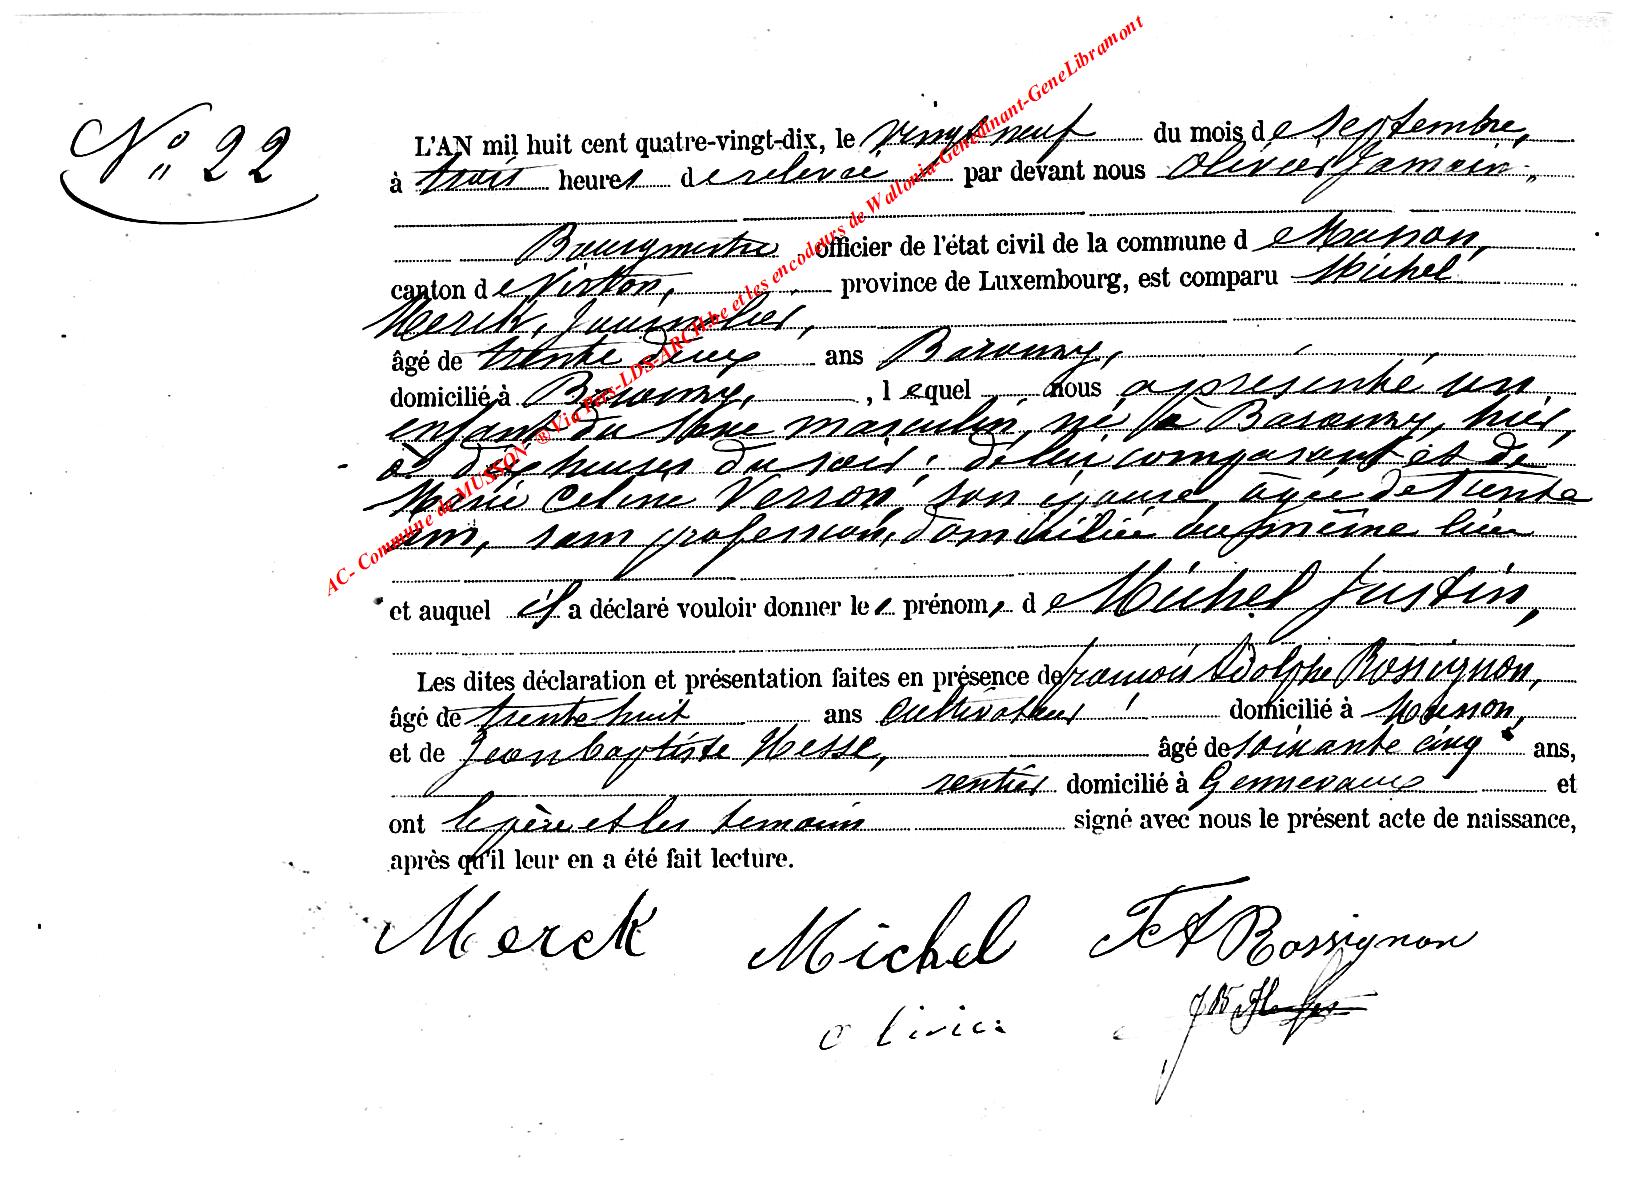 N° 22
L'AN mil huit cent quatre-vingt-dix, le vingt neuf du mois de septembre,
à trois heures de relevée par devant nous Olivier Jamain,
Bourgmestre officier de l'état civil de la commune de Musson,
canton de Virton, province de Luxembourg, est comparu Michel
Merck, journalier,
âgé de trente deux ans Baranzy,
domicilié à Baranzy, , lequel nous a présenté un
enfant du sexe masculin, né à Baranzy, hier,
à dix heures du soir, de lui comparant et de
Marie Celine Verron, son épouse, âgée de trente
ans, sans profession, domiciliée au même lieu
et auquel il a déclaré vouloir donner les prénoms de Michel Justin,
Les dites déclaration et présentation faites en présence de françois Adolphe Rossignon,
âgé de trente huit ans cultivateur domicilié à Musson,
et de Jean baptiste Hesse, âgé de soixante cinq ans,
rentier domicilié à Gennevaux et
ont le père et les temoins signé avec nous le présent acte de naissance,
après qu'il leur en a été fait lecture.
Merck Michel F A Rossignon
J B
Olivier
AC- Commune de MUSSON- ® Via Pers-LDS-ARCH.be et les encodeurs de Wallonia-Genedinant-GeneLibramont